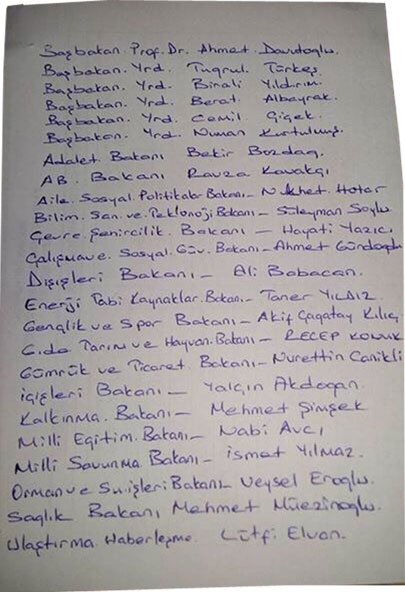 Başbakan. Prof. Dr. Ahmet Davutoglu.
Başbakan. Yrd. Tugrul. Türkeş
Başbakan. Yrd. Binali Yıldırım.
Başbakan. Yrd. Berat. Albayrak.
Başbakan. Yrd. Cemil Çiçek.
Başbakan. Yrd. Numan Kurtulmuş.
Adalet. Bakanı Bekir Bozdag.
AB. Bakanı Ravza Kavakçı
Aile. Sosyal. Politikalar Bakanı_ Nükhet. Hotar
Bilim. San. ve. Teklonoji Bakanı_ Süleyman Soylu
Çevre. Şehircilik. Bakanı _ Hayati Yazıcı
Çalışma ve. Sosyal. Güv. Bakanı_ Ahmet Gündogdu
Dışişleri Bakanı _ Ali Babacan.
Enerji Tabi Kaynaklar. Bakanı_ Taner YILDIZ
Gençlik ve Spor Bakanı_ Akif Çagatay Kılıç
Gıda Tarım ve Hayvan. Bakanı_ RECEP KONUK
Gümrük ve Ticaret Bakanı_ Nurettin Canikli
içişleri Bakanı_ Yalçın Akdogan.
Kalkınma. Bakanı_ Mehmet Şimşek
Milli Egitim. Bakanı_ Nabi Avcı
Milli Savunma. Bakanı_ ismet YILMAZ.
Orman ve Su. işleri Bakanı_ Veysel Eroglu.
Saglık Bakanı Mehmet Müezinoglu.
Ulaştırma. Haberleşme. Lütfi Elvan.